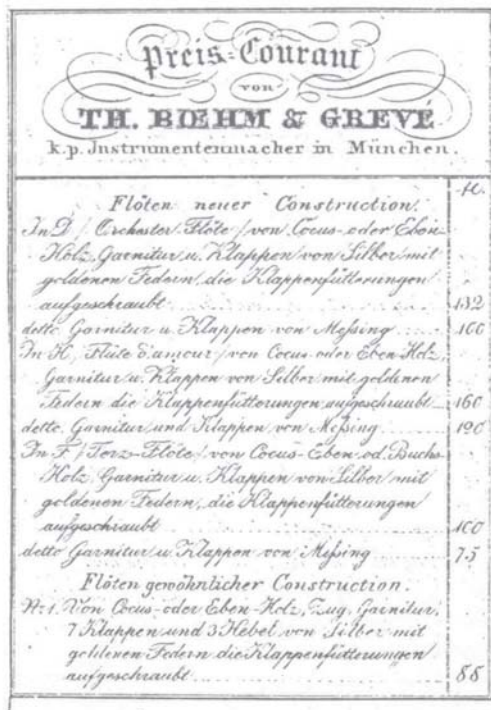 Preis-Courant
von
TH. BŒHM & GREVÉ
k.p. Instrumentenmacher in München.
fl.
Flöten neuer Construction.
In D / Orchester Flöte / von Cocus- oder Eben-
Holz, Garnitur u. Klappen von Silber mit
goldenen Federn, die Klappenfütterungen
aufgeschraubt 132
detto Garnitur u. Klappen von Meſsing 100
In H, / Flûte d'amour / von Cocus oder Eben Holz,
Garnitur u. Klappen von Silber mit goldenen
Federn die Klappenfütterungen aufgeschraubt 160
detto Garnitur und Klappen von Meſsing 120
In F / Terz-Flöte / von Cocus- Eben od. Buchs-
Holz, Garnitur u. Klappen von Silber mit
goldenen Federn, die Klappenfütterungen
aufgeschraubt 100
detto Garnitur u. Klappen von Meſsing 75
Flöten gewöhnlicher Construction.
Nr. 1. Von Cocus- oder Eben-Holz, Zug, Garnitur,
7 Klappen und 3 Hebel von Silber mit
goldenen Federn die Klappenfütterungen
aufgeschraubt 88